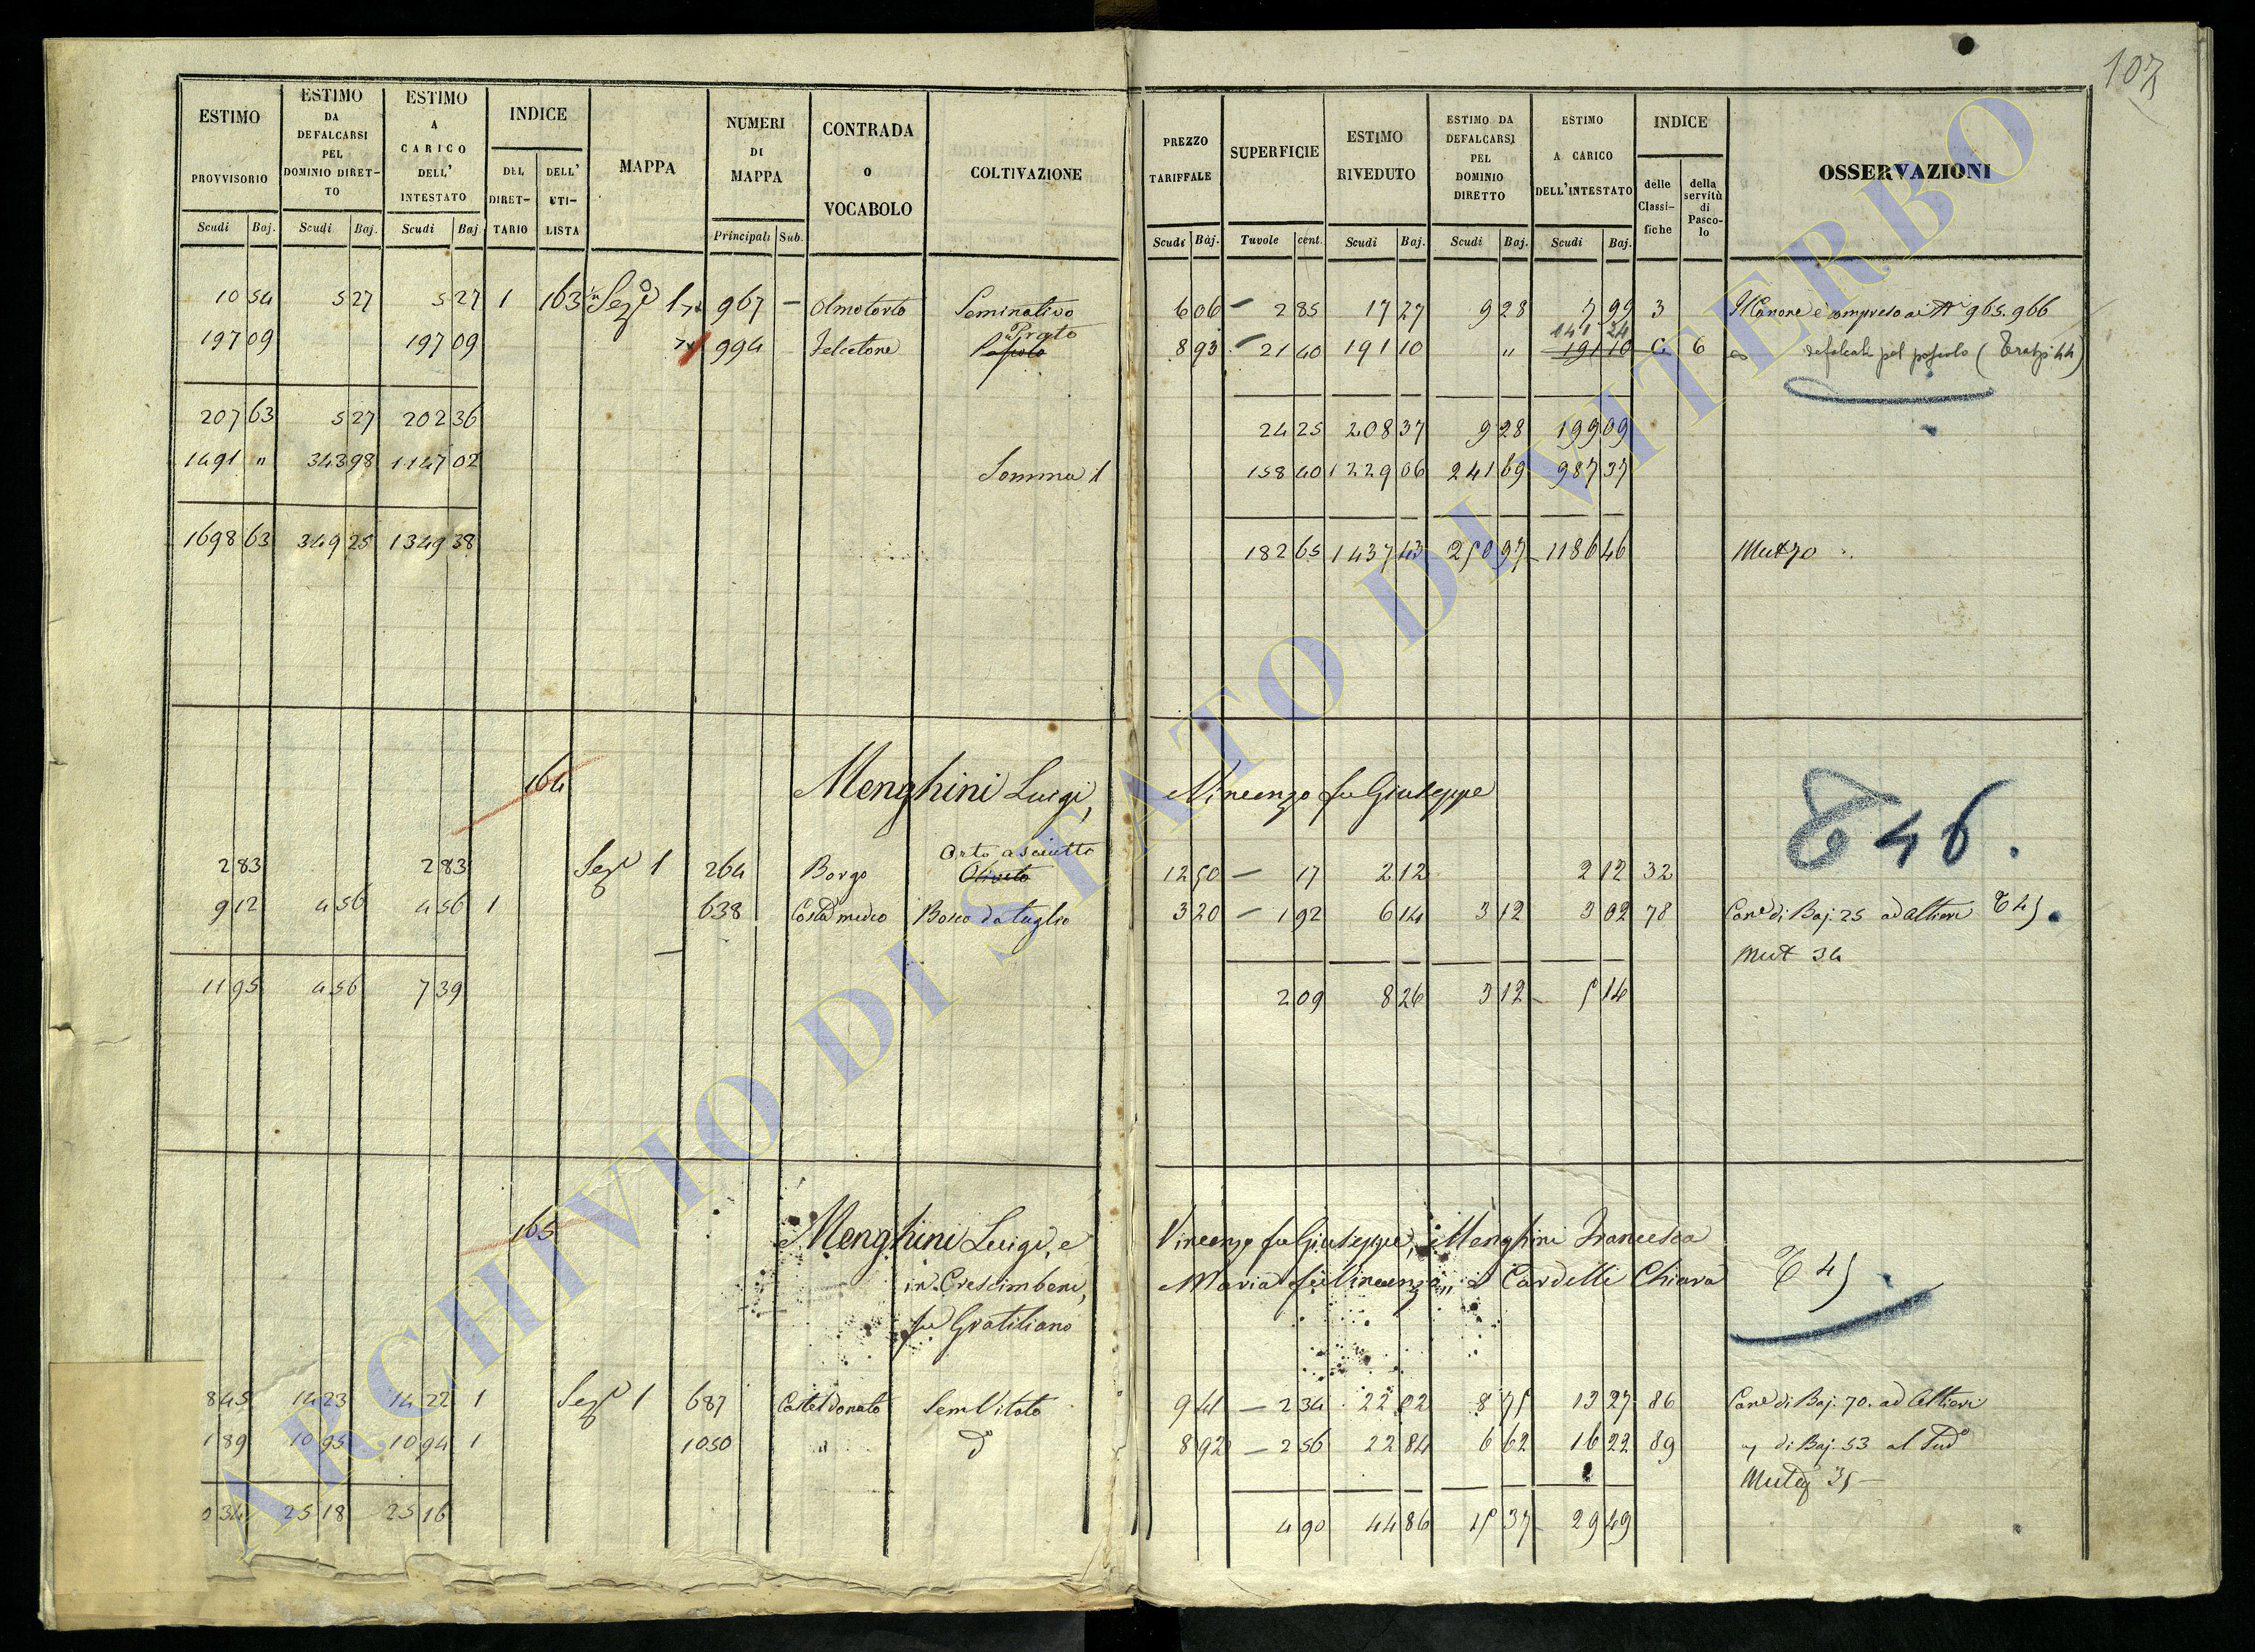 107
ESTIMO PROVVISORIO ESTIMO DA DEFALCARSI PEL DOMINIO DIRETTO ESTIMO A CARICO DELL' INTESTATO INDICE DEL DIRETTARIO DELL' UTILISTA MAPPA NUMERI DI MAPPA CONTRADA o VOCABOLO COLTIVAZIONE PREZZO TARIFFALE SUPERFICIE ESTIMO RIVEDUTO ESTIMO DA DEFALCARSI PEL DOMINIO DIRETTO ESTIMO A CARICO DELL'INTESTATO INDICE delle Classifiche della servitù di Pascolo OSSERVAZIONI
Scudi Baj. Scudi Baj. Scudi Baj Principali Sub. Scudi Baj. Tavole cent. Scudi Baj. Scudi Baj. Scudi Baj.
10 54 5 27 5 27 1 163 Sezᵉ 1 967 — Olmotorto Seminativo 6 06 — 2 85 17 27 9 28 7 99 3 Il Canone è compreso ai Nⁱ 965. 966
Prato
141 24
197 09 197 09 994 Felcetone Pascolo 8 93 — 21 40 191 10 " 191 10 6 defalcati pel pascolo
207 63 5 27 202 36 24 25 208 37 9 28 199 09
1491 " 343 98 1147 02 Somma 1 158 40 1229 06 241 69 987 37
1698 63 349 25 1349 38 182 65 1437 43 250 97 1186 46 Mut 70
164 Menghini Luigi, Vincenzo fu Giuseppe
T 46.
Orto asciutto
2 83 2 83 Sezᵉ 1 264 Borgo Oliveto 12 50 — 17 2 12 2 12 32
9 12 4 56 4 56 1 638 Costa medeo Bosco da taglio 3 20 — 1 92 6 14 3 12 3 02 78 Canᵉ di Baj. 25 ad Altieri T 45
Mut 34
11 95 4 56 7 39 2 09 8 26 3 12 5 14
165 Menghini Luigi, e Vincenzo fu Giuseppe, Menghini Francesca
in Crescimbene, Maria fu Vincenzo, e Cardelli Chiara T 45
fu Gratiliano
845 14 23 14 22 1 Sezᵉ 1 687 Castel donato Sem Vitato 9 41 — 2 34 22 02 8 75 13 27 86 Canᵉ di Baj. 70. ad Altieri
1 89 10 95 10 94 1 1050 " dº 8 92 — 2 56 22 84 6 62 16 22 89 di Baj. 53 al Sudº
Mutaz 35 —
34 25 18 25 16 4 90 44 86 15 37 29 49
ARCHIVIO DI STATO DI VITERBO